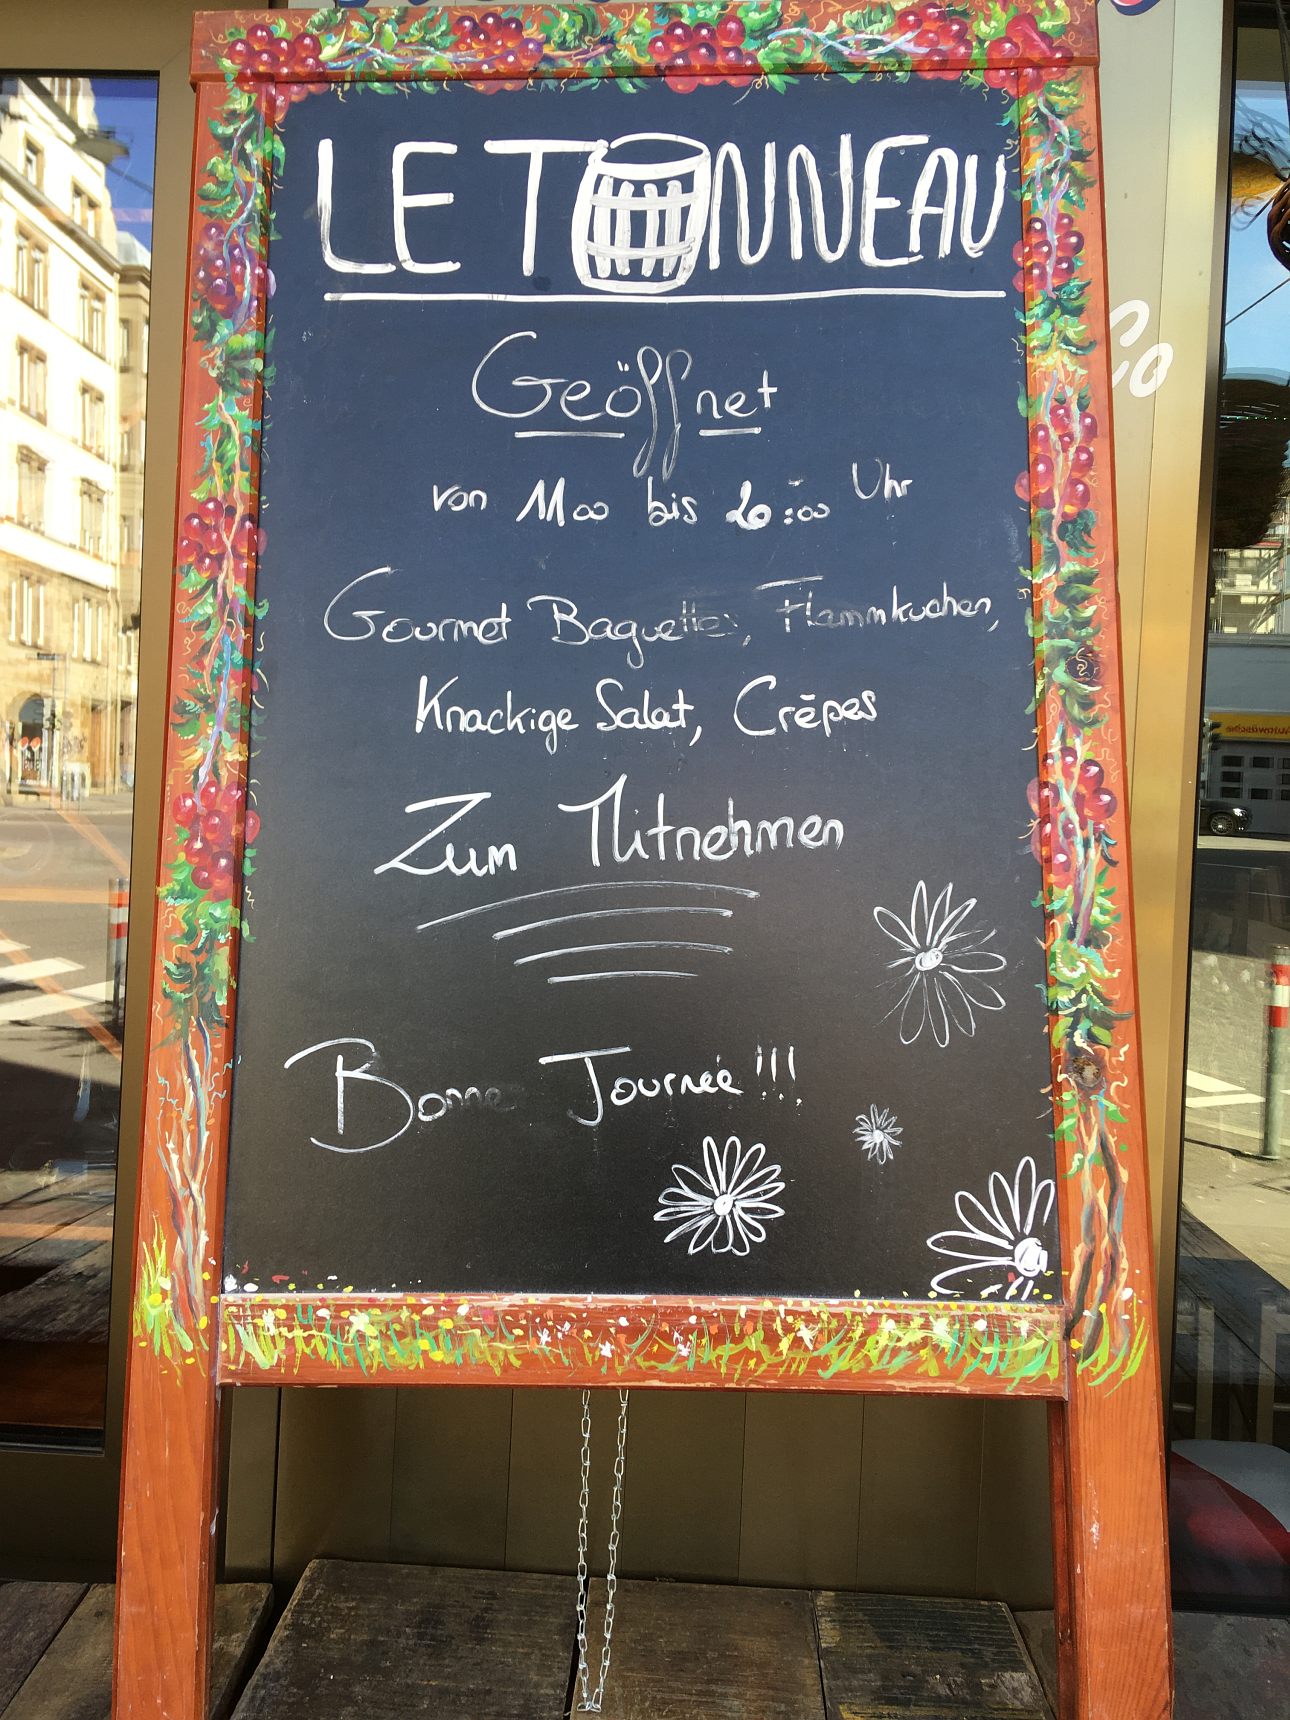 LE TONNEAU
Geöffnet
von 11 00 bis 20:00 Uhr
Gourmet Baguettes, Flammkuchen,
Knackige Salat, Crêpes
Zum Mitnehmen
Bonne Journée!!!
Co